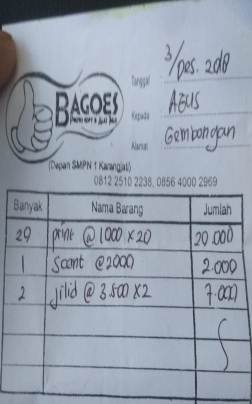 Tanggal 3/Des. 2018
BAGOES
Kepada AGUS
Alamat Gembongan
(Depan SMPN 1 Karangjati)
0812 2510 2238, 0856 4000 2969
Banyak Nama Barang Jumlah
20 print @ 1000 x 20 20.000
1 Scant @2000 2.000
2 Jilid @ 3.500 x 2 7.000